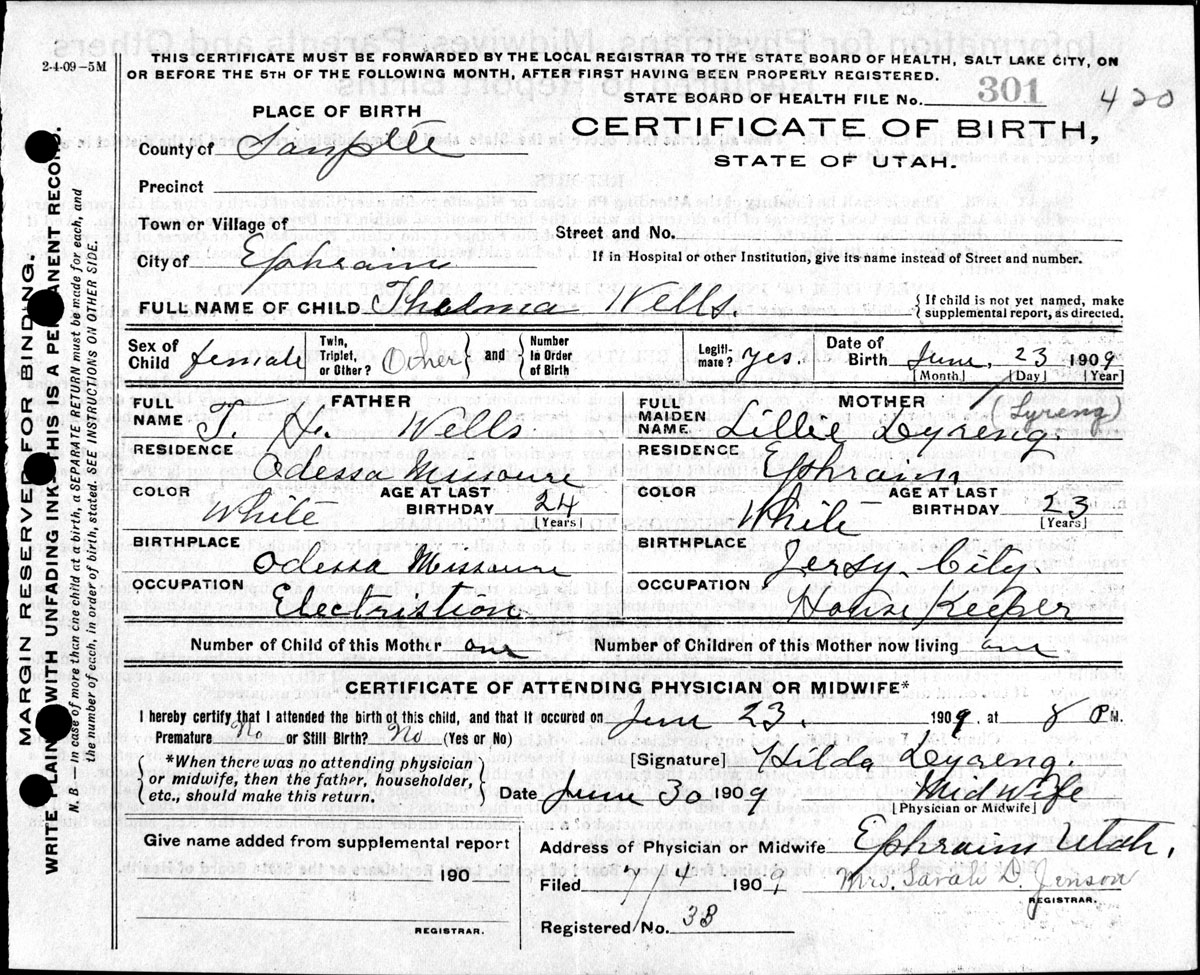 2-4-09-5M
THIS CERTIFICATE MUST BE FORWARDED BY THE LOCAL REGISTRAR TO THE STATE BOARD OF HEALTH, SALT LAKE CITY, ON
OR BEFORE THE 5TH OF THE FOLLOWING MONTH, AFTER FIRST HAVING BEEN PROPERLY REGISTERED.
STATE BOARD OF HEALTH FILE No. 301 420
PLACE OF BIRTH
CERTIFICATE OF BIRTH,
STATE OF UTAH.
County of Sanpete
Precinct
Town or Village of
Street and No.
City of Ephraim
If in Hospital or other Institution, give its name instead of Street and number.
FULL NAME OF CHILD Thelma Wells.
If child is not yet named, make
supplemental report, as directed.
Sex of Child female Twin, Triplet, or Other? Other and Number in Order of Birth Legiti-mate? yes. Date of Birth June, 23 1909
[Month] [Day] [Year]
FATHER
FULL NAME T. H. Wells
RESIDENCE
Odessa Missoure
COLOR White AGE AT LAST BIRTHDAY 24
[Years]
BIRTHPLACE
Odessa Missoure
OCCUPATION
Electristion
MOTHER (Lyreng)
FULL MAIDEN NAME Lillie Dyreng.
RESIDENCE
Ephraim
COLOR White AGE AT LAST BIRTHDAY 23
[Years]
BIRTHPLACE
Jersy. City.
OCCUPATION
House Keeper
Number of Child of this Mother one Number of Children of this Mother now living one
CERTIFICATE OF ATTENDING PHYSICIAN OR MIDWIFE*
I hereby certify that I attended the birth of this child, and that it occured on June 23. 1909, at 8 P M.
Premature No or Still Birth? No (Yes or No)
*When there was no attending physician
or midwife, then the father, householder,
etc., should make this return.
[Signature] Hilda Dyreng.
Date June 30 1909 MidWife
[Physician or Midwife]
Give name added from supplemental report
190
REGISTRAR.
Address of Physician or Midwife Ephraim Utah.
Filed 7/4 1909 Mrs. Sarah D. Jenson
REGISTRAR.
Registered No. 33
MARGIN RESERVED FOR BINDING.
WRITE PLAINLY WITH UNFADING INK—THIS IS A PERMANENT RECORD.
N. B.—In case of more than one child at a birth, a SEPARATE RETURN must be made for each, and
the number of each, in order of birth, stated. SEE INSTRUCTIONS ON OTHER SIDE.